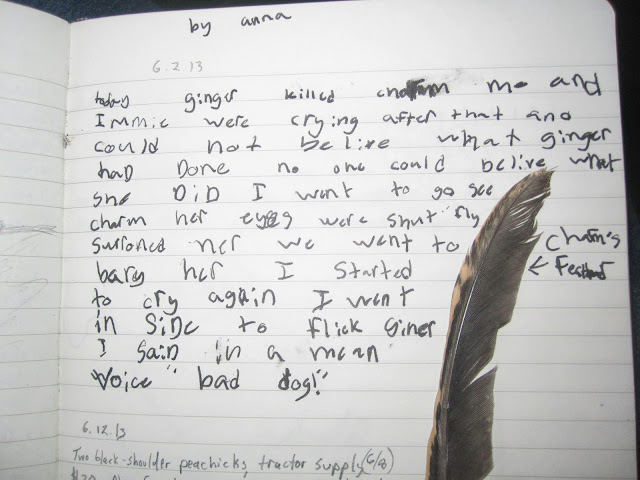 by anna
6.2.13
today ginger killed charm me and
Immie were crying after that and
could not belive what ginger
had Done no one could belive what
she DiD I went to go see
charm her eyes were shut fly
surroned her we went to
bary her I started
to cry again I went
in SiDe to flick giner
I said in a mean
"voice" bad dog!"
charm's
← Feather
6.12.13
Two black-shoulder peachicks, tractor supply (6/8)